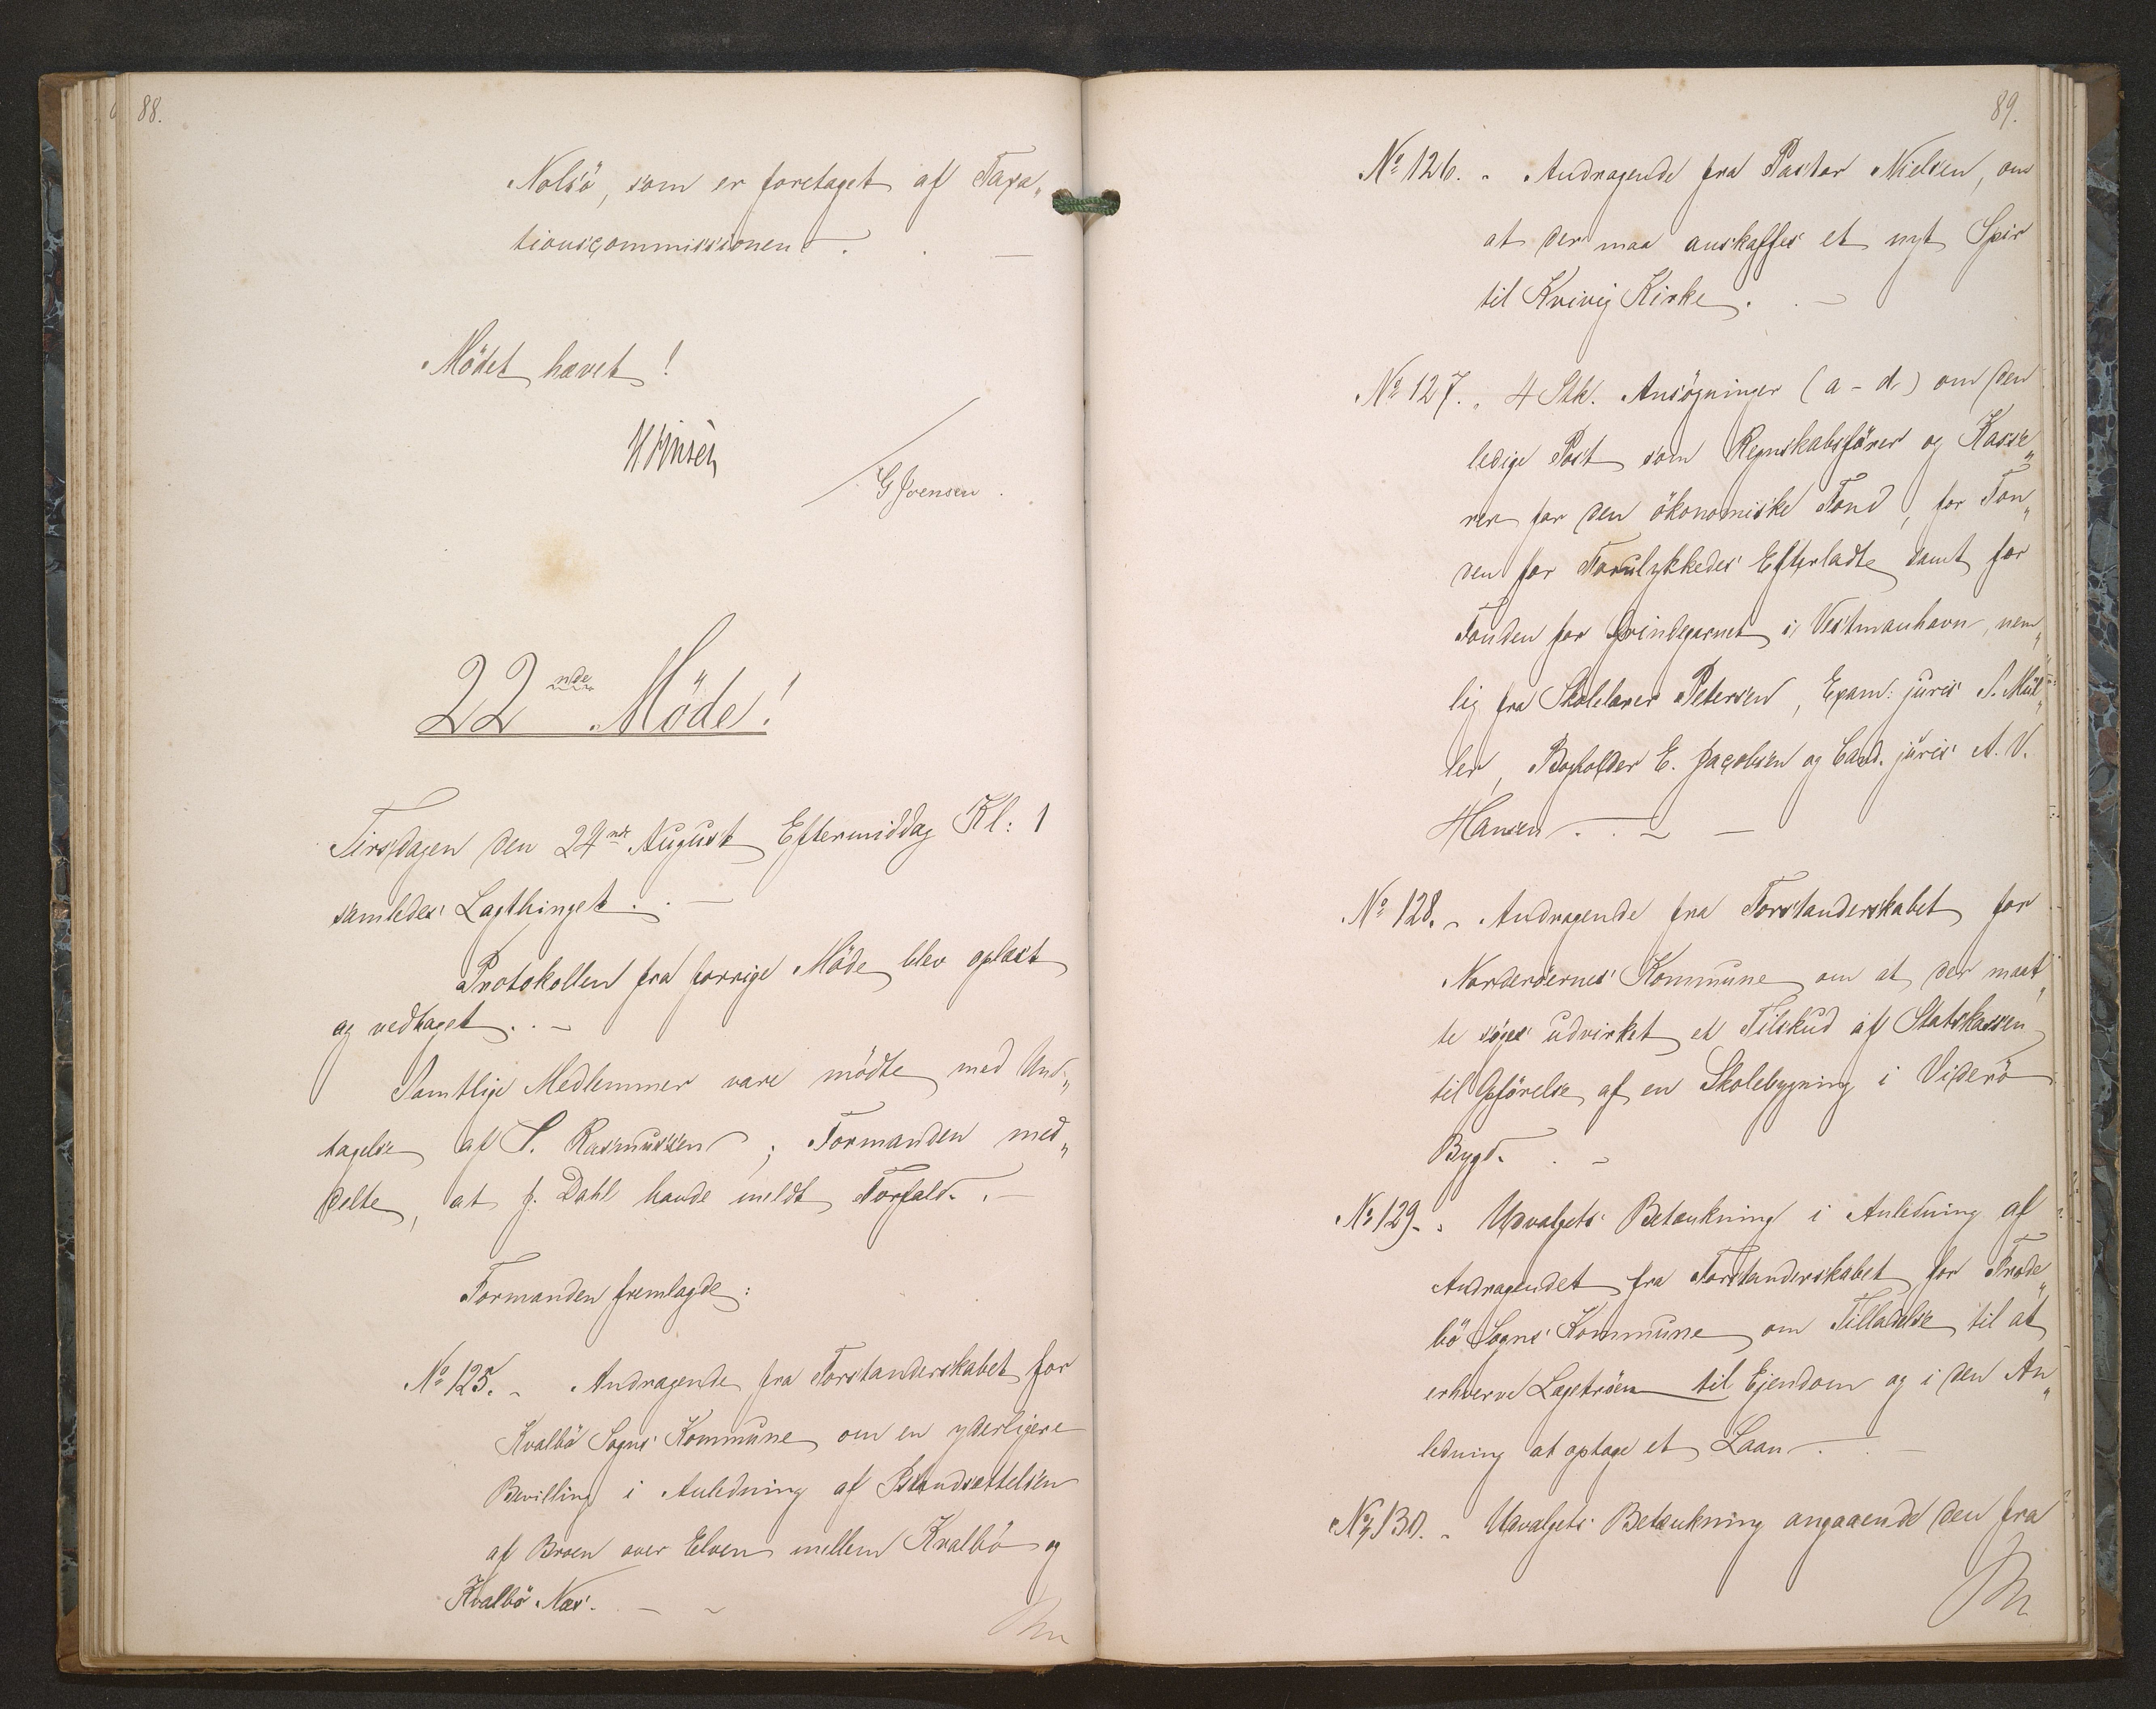 88.
Nolsö, som er foretaget af Taxa„
tionscommissionen. . —
Mödet hævet!
G Joensen.
22nde Möde!
Tirsdagen den 24nde August Eftermiddag Kl: 1
samledes Lagthinget. . —
Protokollen fra forrige Möde blev oplæst
og vedtaget. . —
Samtlige Medlemmer vare mödte med Und„
tagelse af S. Rasmussen; Formanden med„
delte, at J. Dahl havde meldt Forfald. . —
Formanden fremlagde:
No 125. - Andragende fra Forstanderskabet for
Kvalbö Sogns Kommune om en yderligere
Bevilling i Anledning af Istandsættelsen
af Broen over Elven mellem Kvalbö og
Kvalbö Næs. — -
89.
No 126. - Andragende fra Pastor Nielsen, om
at der maa anskaffes et nyt Spir
til Kvivig Kirke. . —
No 127. - 4 Stk. Ansögninger (a - d.) om den
ledige Post som Regnskabsförer og Kasse„
rer for den ökonomiske Fond, for Fon„
den for Forulykkedes Efterladte samt for
Fonden for Grindegarnet i Vestmanhavn, nem„
lig fra Skolelærer Petersen, Exam: juris S. Mül„
ler, Bogholder E. Jacobsen og Cand. juris A. V.
Hansen. . - —
No 128. - Andragende fra Forstanderskabet for
Norderöernes Kommune om at der maat„
te söges udvirket et Tilskud af Statskassen
til Opförelse af en Skolebygning i Viderö
Bygd. . -
No 129. - Udvalgets Betænkning i Anledning af
Andragendet fra Forstanderskabet for Frode„
bö Sogns Kommune om Tilladelse til at
erhverve Lagetröen til Ejendom og i den An„
ledning at optage et Laan. . —
No 130. - Udvalgets Betænkning angaaende den fra